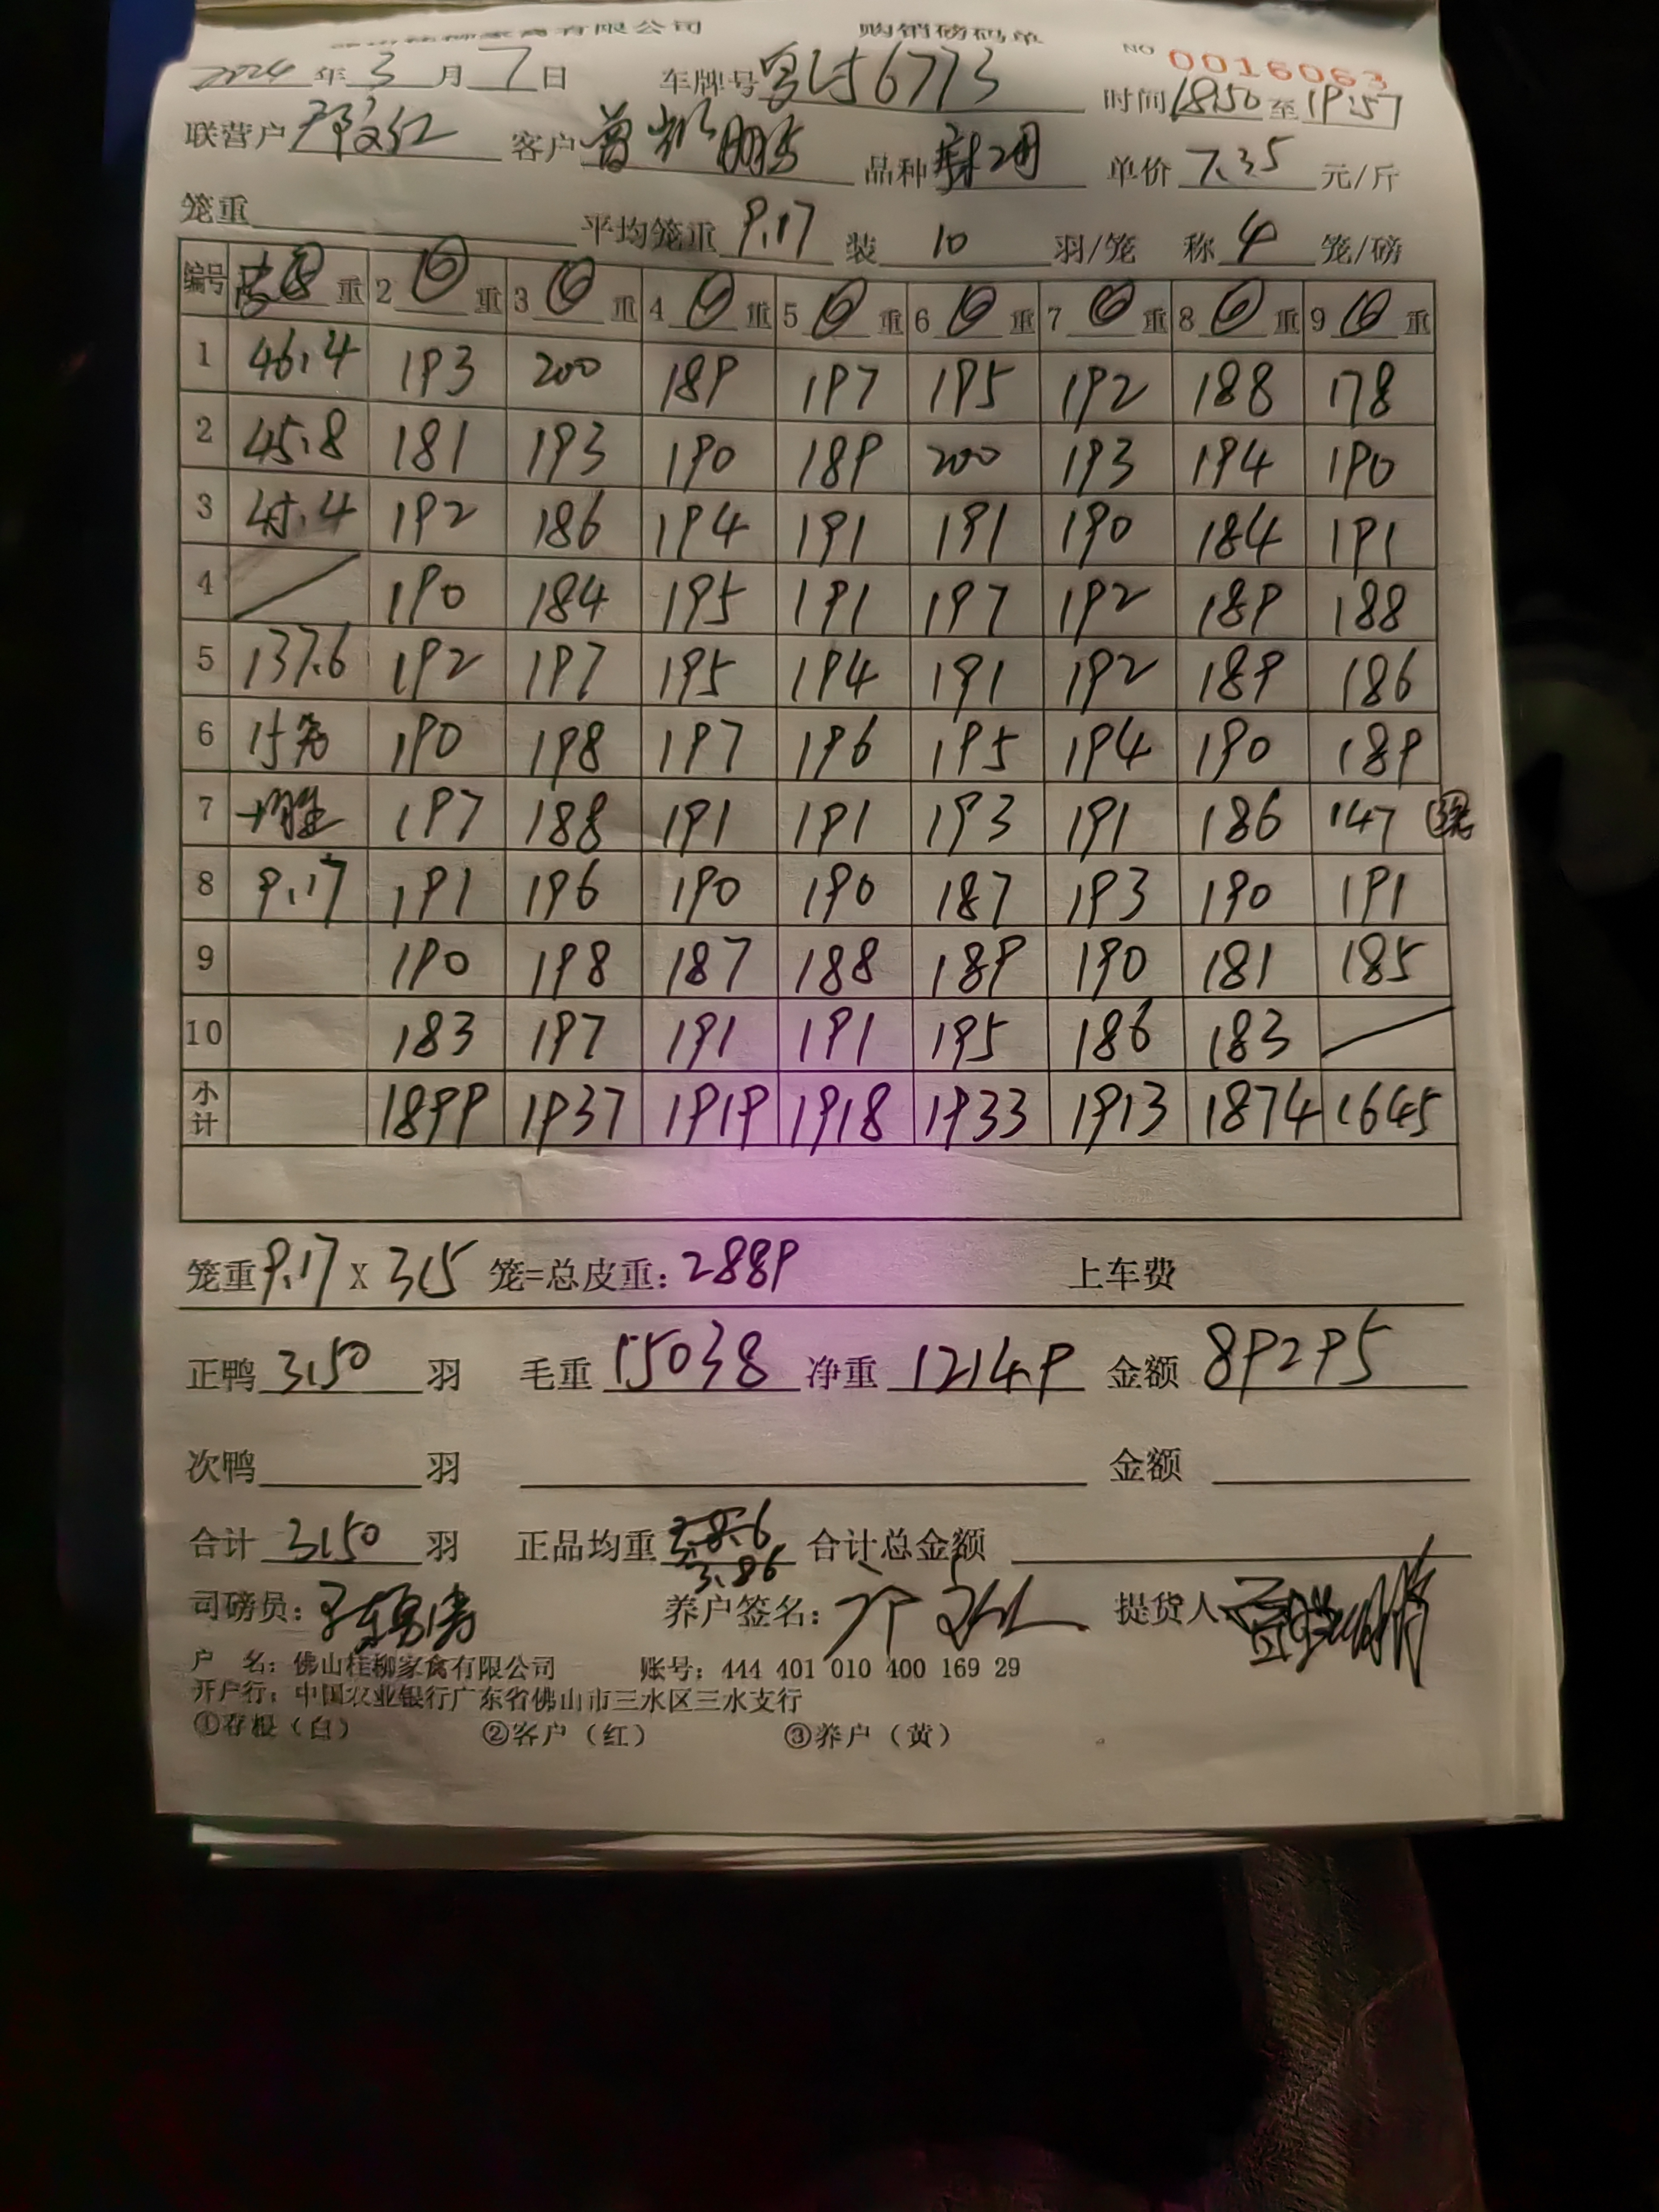 家禽有限公司 购销磅码单 NO 0016063
2024年3月7日 车牌号 粤L56773 时间18:50至19:57
联营户 客户 品种 单价 7.35 元/斤
笼重 平均笼重 9.17 装 10 羽/笼 称 4 笼/磅
编号 重 2 重 3 重 4 重 5 重 6 重 7 重 8 重 9 重
1 46.4 193 200 189 197 195 192 188 178
2 45.8 181 193 190 189 200 193 194 190
3 45.4 192 186 194 191 191 190 184 191
4 190 184 195 191 197 192 189 188
5 137.6 192 197 195 194 191 192 189 186
6 15笼 190 198 197 196 195 194 190 189
7 197 188 191 191 193 191 186 147 3笼
8 9.17 191 196 190 190 187 193 190 191
9 190 198 187 188 189 190 181 185
10 183 197 191 191 195 186 183
小计 1899 1937 1919 1918 1933 1913 1874 1645
笼重 9.17 X 315 笼=总皮重: 2889 上车费
正鸭 3150 羽 毛重 15038 净重 12149 金额 89295
次鸭 羽 金额
合计 3150 羽 正品均重 3.86 合计总金额
司磅员: 养户签名: 提货人
户 名: 佛山桂柳家禽有限公司 账号: 444 401 010 400 169 29
开户行: 中国农业银行广东省佛山市三水区三水支行
①存根(白) ②客户(红) ③养户(黄)